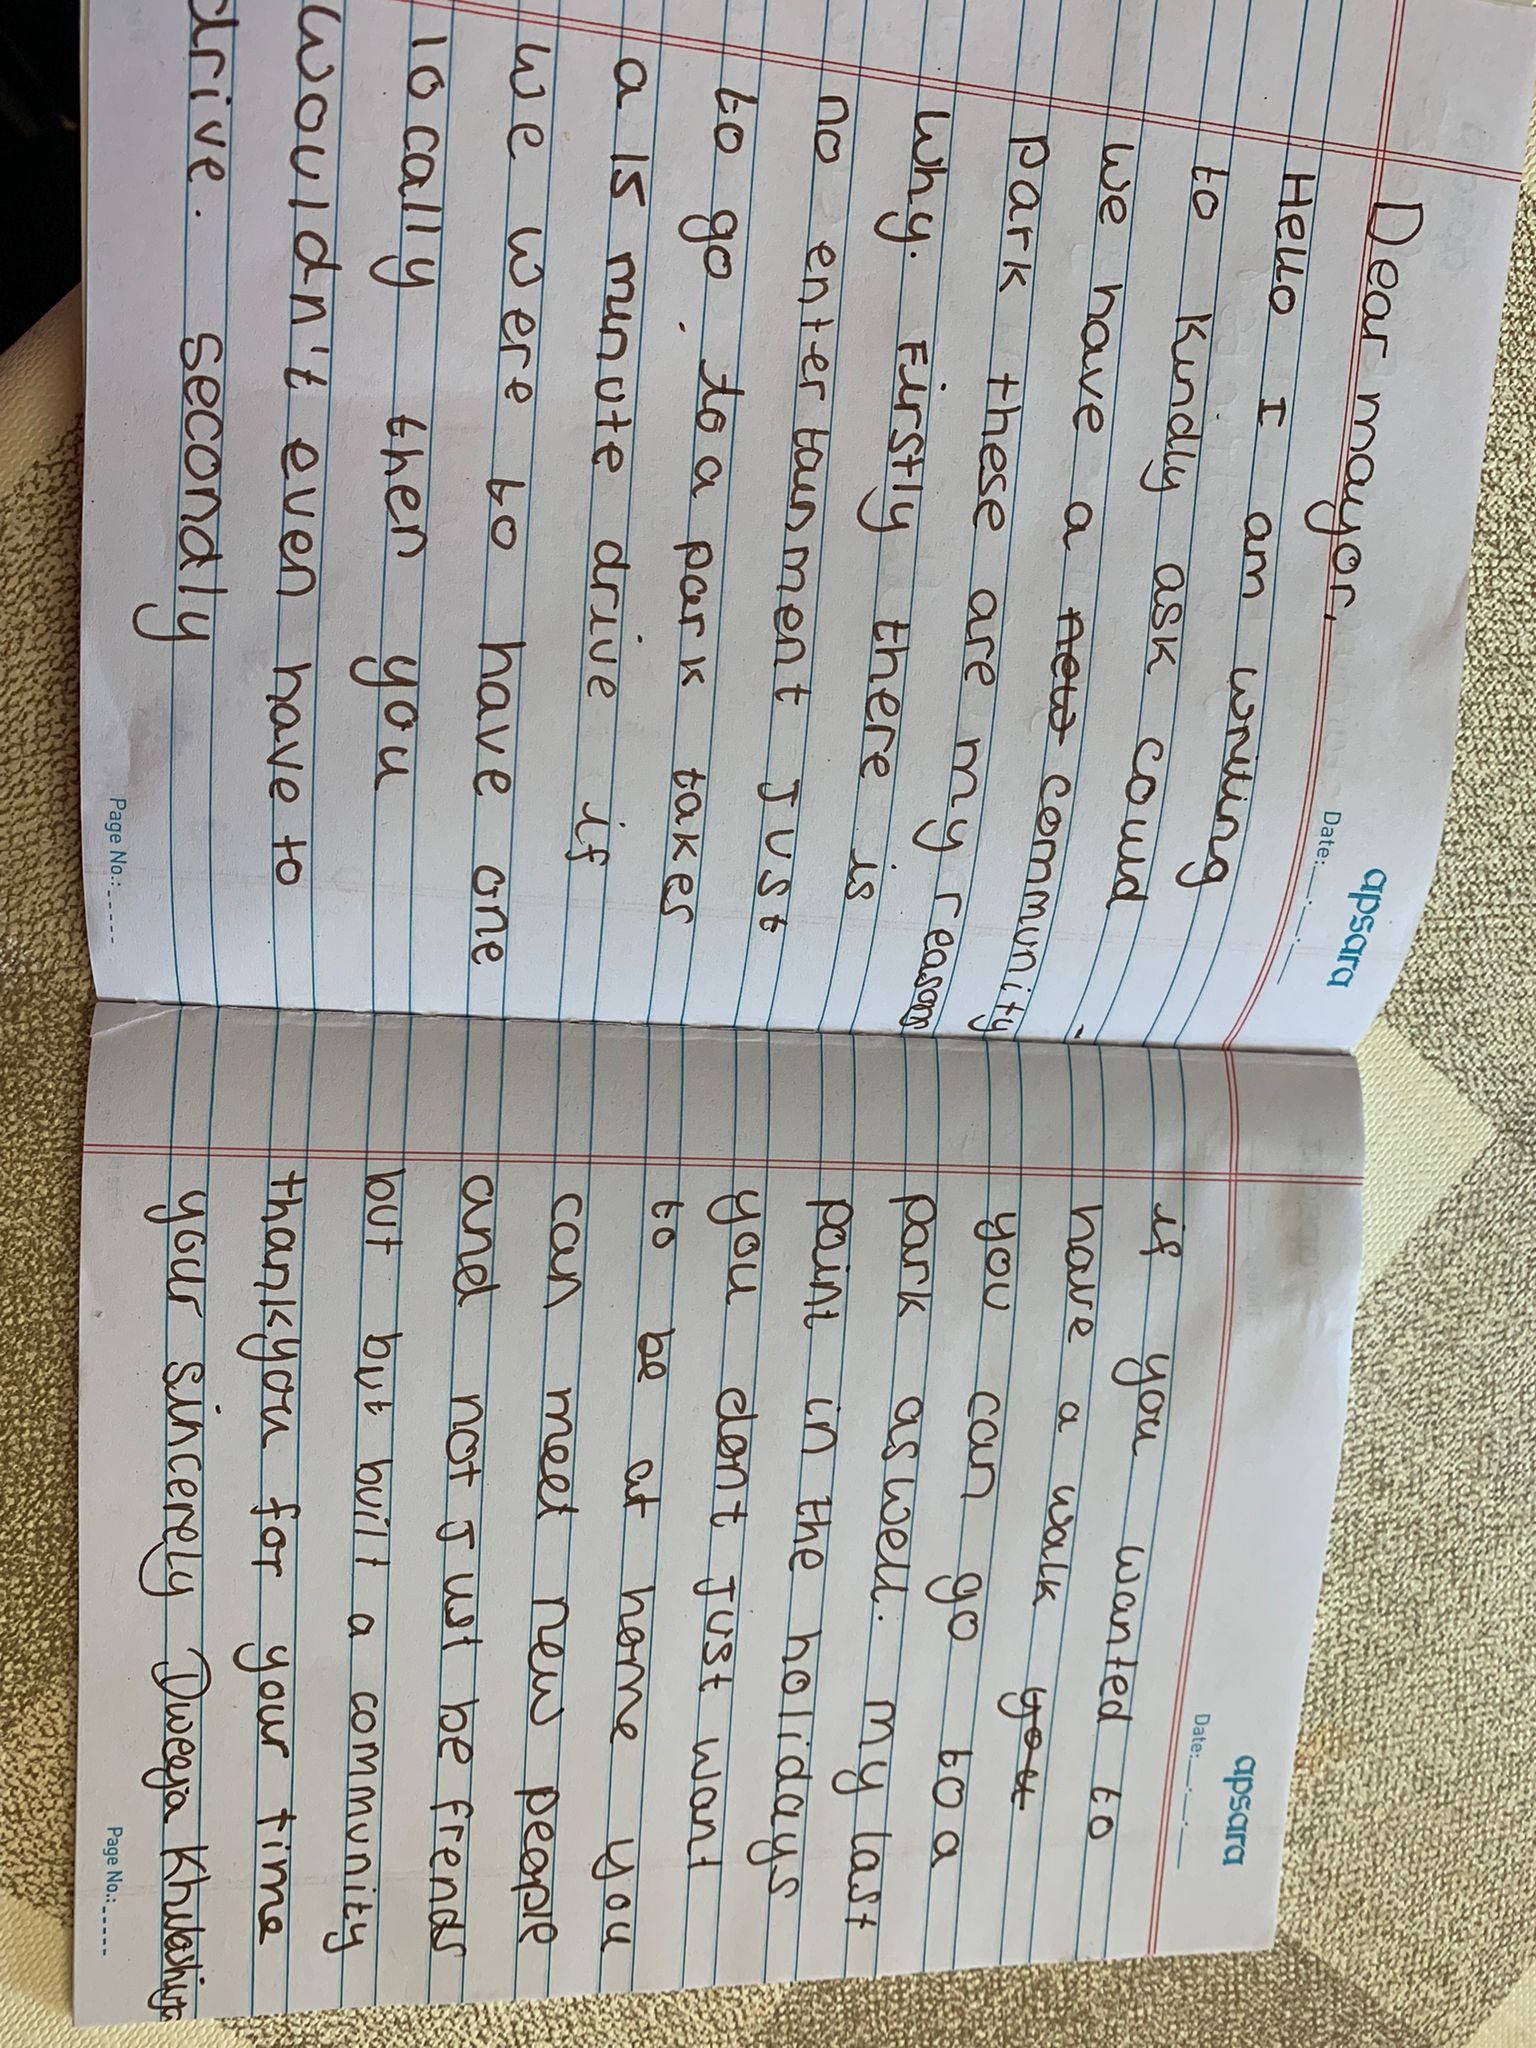 apsara
Date: __.__.__
Dear mayor,
Hello I am writing
to kindly ask could
we have a new community
park these are my reasons
why. Firstly there is
no entertainment Just
to go to a park takes
a 15 minute drive if
we were to have one
locally then you
wouldn't even have to
drive. secondly
Page No.:
apsara
Date: __.__.__
if you wanted to
have a walk you
you can go to a
park aswell. my last
point in the holidays
you dont Just want
to be at home you
can meet new people
and not Just be frends
but but built a community
thankyou for your time
your sincerely Dweeja
Page No.: